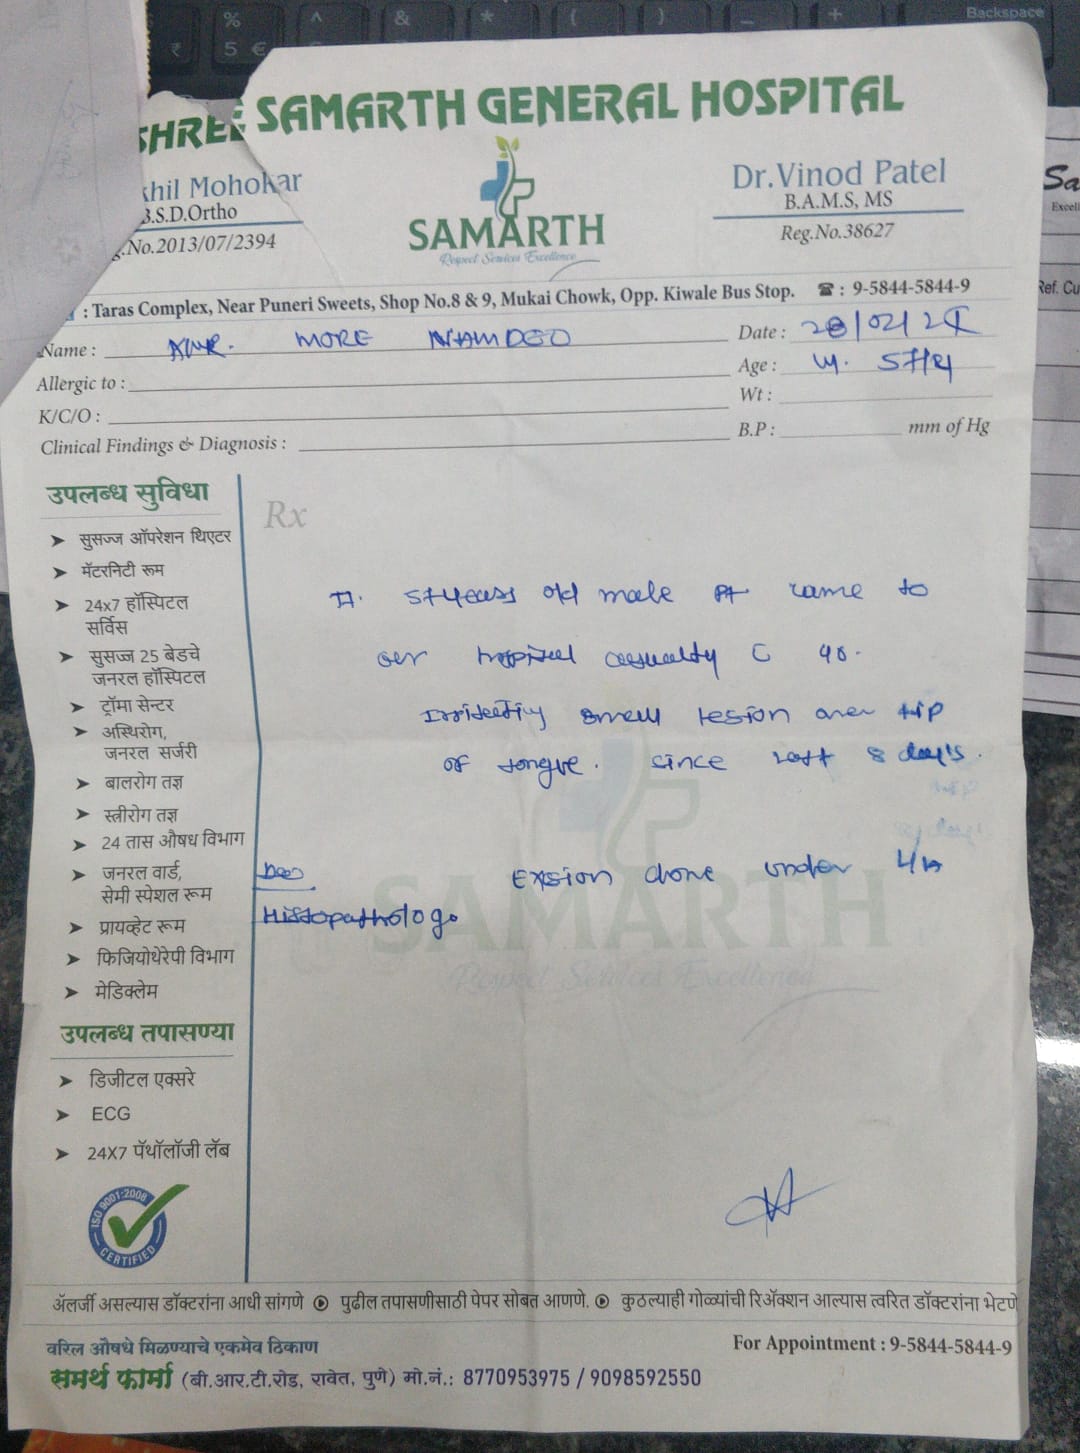 % & * ( ) _ + Backspace
₹ 5 €
SHREE SAMARTH GENERAL HOSPITAL
khil Mohokar
B.S.D.Ortho
g.No.2013/07/2394
SAMARTH
Respect Services Excellence
Dr.Vinod Patel
B.A.M.S, MS
Reg.No.38627
Sa
Excell
Ref. Cu
: Taras Complex, Near Puneri Sweets, Shop No.8 & 9, Mukai Chowk, Opp. Kiwale Bus Stop. ☎ : 9-5844-5844-9
Name : MORE NAMDEO
Date : 28/02/25
Allergic to :
Age :
K/C/O :
Wt :
Clinical Findings & Diagnosis :
B.P : mm of Hg
उपलब्ध सुविधा
➤ सुसज्ज ऑपरेशन थिएटर
➤ मॅटरनिटी रूम
➤ 24x7 हॉस्पिटल
सर्विस
➤ सुसज्ज 25 बेडचे
जनरल हॉस्पिटल
➤ ट्रॉमा सेन्टर
➤ अस्थिरोग,
जनरल सर्जरी
➤ बालरोग तज्ञ
➤ स्त्रीरोग तज्ञ
➤ 24 तास औषध विभाग
➤ जनरल वार्ड,
सेमी स्पेशल रूम
➤ प्रायव्हेट रूम
➤ फिजियोथेरेपी विभाग
➤ मेडिक्लेम
उपलब्ध तपासण्या
➤ डिजीटल एक्सरे
➤ ECG
➤ 24X7 पॅथॉलॉजी लॅब
ISO 9001:2008
CERTIFIED
Rx
57 years old male pt came to
our hospital casualty c
small lesion over tip
of tongue. since last 8 day's.
Exsion done under L/A
Histopathology
SAMARTH
Respect Services Excellence
अ‍ॅलर्जी असल्यास डॉक्टरांना आधी सांगणे ⊙ पुढील तपासणीसाठी पेपर सोबत आणणे. ⊙ कुठल्याही गोळ्यांची रिॲक्शन आल्यास त्वरित डॉक्टरांना भेटणे
वरिल औषधे मिळण्याचे एकमेव ठिकाण
For Appointment : 9-5844-5844-9
समर्थ फार्मा (बी.आर.टी.रोड, रावेत, पुणे) मो.नं.: 8770953975 / 9098592550